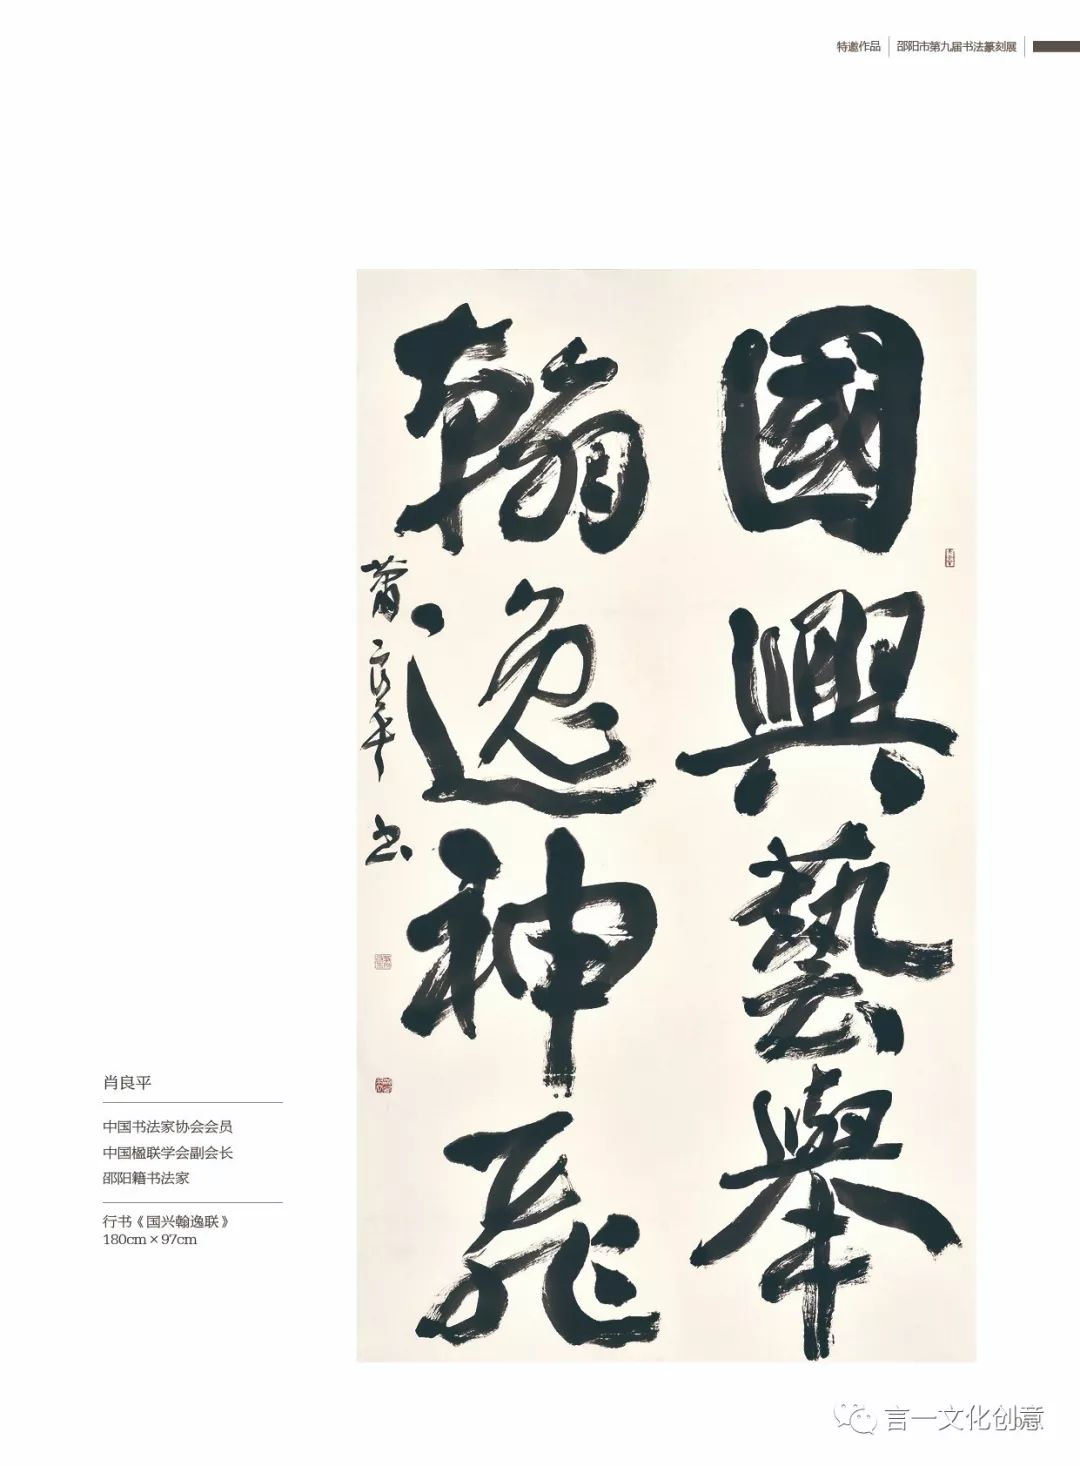 特邀作品 邵阳市第九届书法篆刻展
國興藝舉
翰逸神飛
萧良平书
肖良平
中国书法家协会会员
中国楹联学会副会长
邵阳籍书法家
行书《国兴翰逸联》
180cm×97cm
言一文化创意